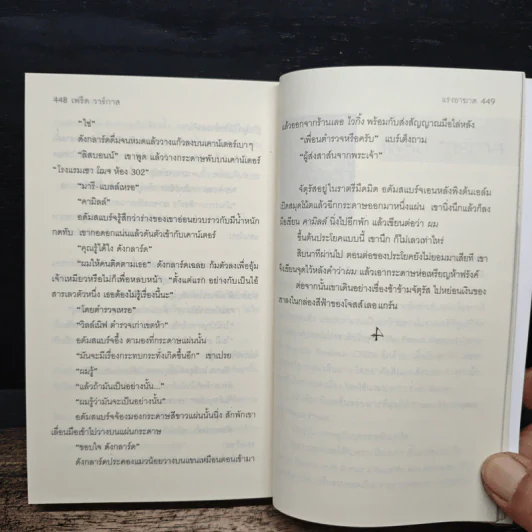 448 เฟร็ด วาร์กาส
"ใช่"
ดังกลาร์ดดื่มจนหมดแล้ววางแก้วลงบนเคาน์เตอร์เบาๆ
"ลิสบอนน์" เขาพูด แล้ววางกระดาษพับบนเคาน์เตอร์
"โรงแรมเซา โฌจ ห้อง 302"
"มารี-แบลล์เหรอ"
"คามิลล์"
อดัมสแบร์ครู้สึกว่าร่างของเขาอ่อนวบราวกับมีน้ำหนัก
กดทับ เขากอดอกแน่นแล้วค้นตัวเข้ากับเคาน์เตอร์
"คุณรู้ได้ไง ดังกลาร์ด"
"ผมให้คนติดตามเธอ" ดังกลาร์ดเฉลย ก้มตัวลงเพื่ออุ้ม
เจ้าเหมียวหรือไม่ก็เพื่อหลบหน้า "ตั้งแต่แรก อย่างกับเป็นไอ้
สารเลวตัวหนึ่ง เธอต้องไม่รู้เรื่องนี้นะ"
"โดยตำรวจเหรอ"
"วิลล์เนิฟ ตำรวจเก่าเขตห้า"
อดัมสแบร์คอึ้ง ตามองที่กระดาษแผ่นนั้น
"มันจะมีเรื่องกระทบกระทั่งเกิดขึ้นอีก" เขาเปรย
"ผมรู้"
"แล้วถ้ามันเป็นอย่างนั้น..."
"ผมรู้ว่ามันจะเป็นอย่างนั้น"
อดัมสแบร์คจ้องมองกระดาษสีขาวแผ่นนั้นนิ่ง สักพักเขา
เลื่อนมือเข้าไปวางบนแผ่นกระดาษ
"ขอบใจ ดังกลาร์ด"
ดังกลาร์ดประคองแมวน้อยวางบนแขนเหมือนตอนเข้ามา
แรงอาฆาต 449
แล้วออกจากร้านเลอ ไวกิ้ง พร้อมกับส่งสัญญาณมือไล่หลัง
"เพื่อนตำรวจหรือครับ" แบร์เต็งถาม
"ผู้ส่งสาส์นจากพระเจ้า"
จัตุรัสอยู่ในราตรีมืดมิด อดัมสแบร์คเอนหลังพิงต้นเอล์ม
เปิดสมุดโน้ตแล้วฉีกกระดาษออกมาหนึ่งแผ่น เขานิ่งนึกแล้วก็ลง
มือเขียน คามิลล์ นิ่งไปอีกพัก แล้วเขียนต่อว่า ผม
ขึ้นต้นประโยคแบบนี้ เขานึก ก็ไม่เลวเท่าไหร่
สิบนาทีที่ผ่านไป ตอนต่อของประโยคยังไม่ยอมมาเสียที เขา
จึงเขียนจุดไว้หลังคำว่าผม แล้วเอากระดาษห่อเหรียญห้าฟรังค์
ต่อจากนั้นเขาเดินอย่างเชื่องช้าข้ามจัตุรัส ไปหย่อนเงินของ
เขาลงในกล่องสีฟ้าของโจสส์ เลอ แกร์น